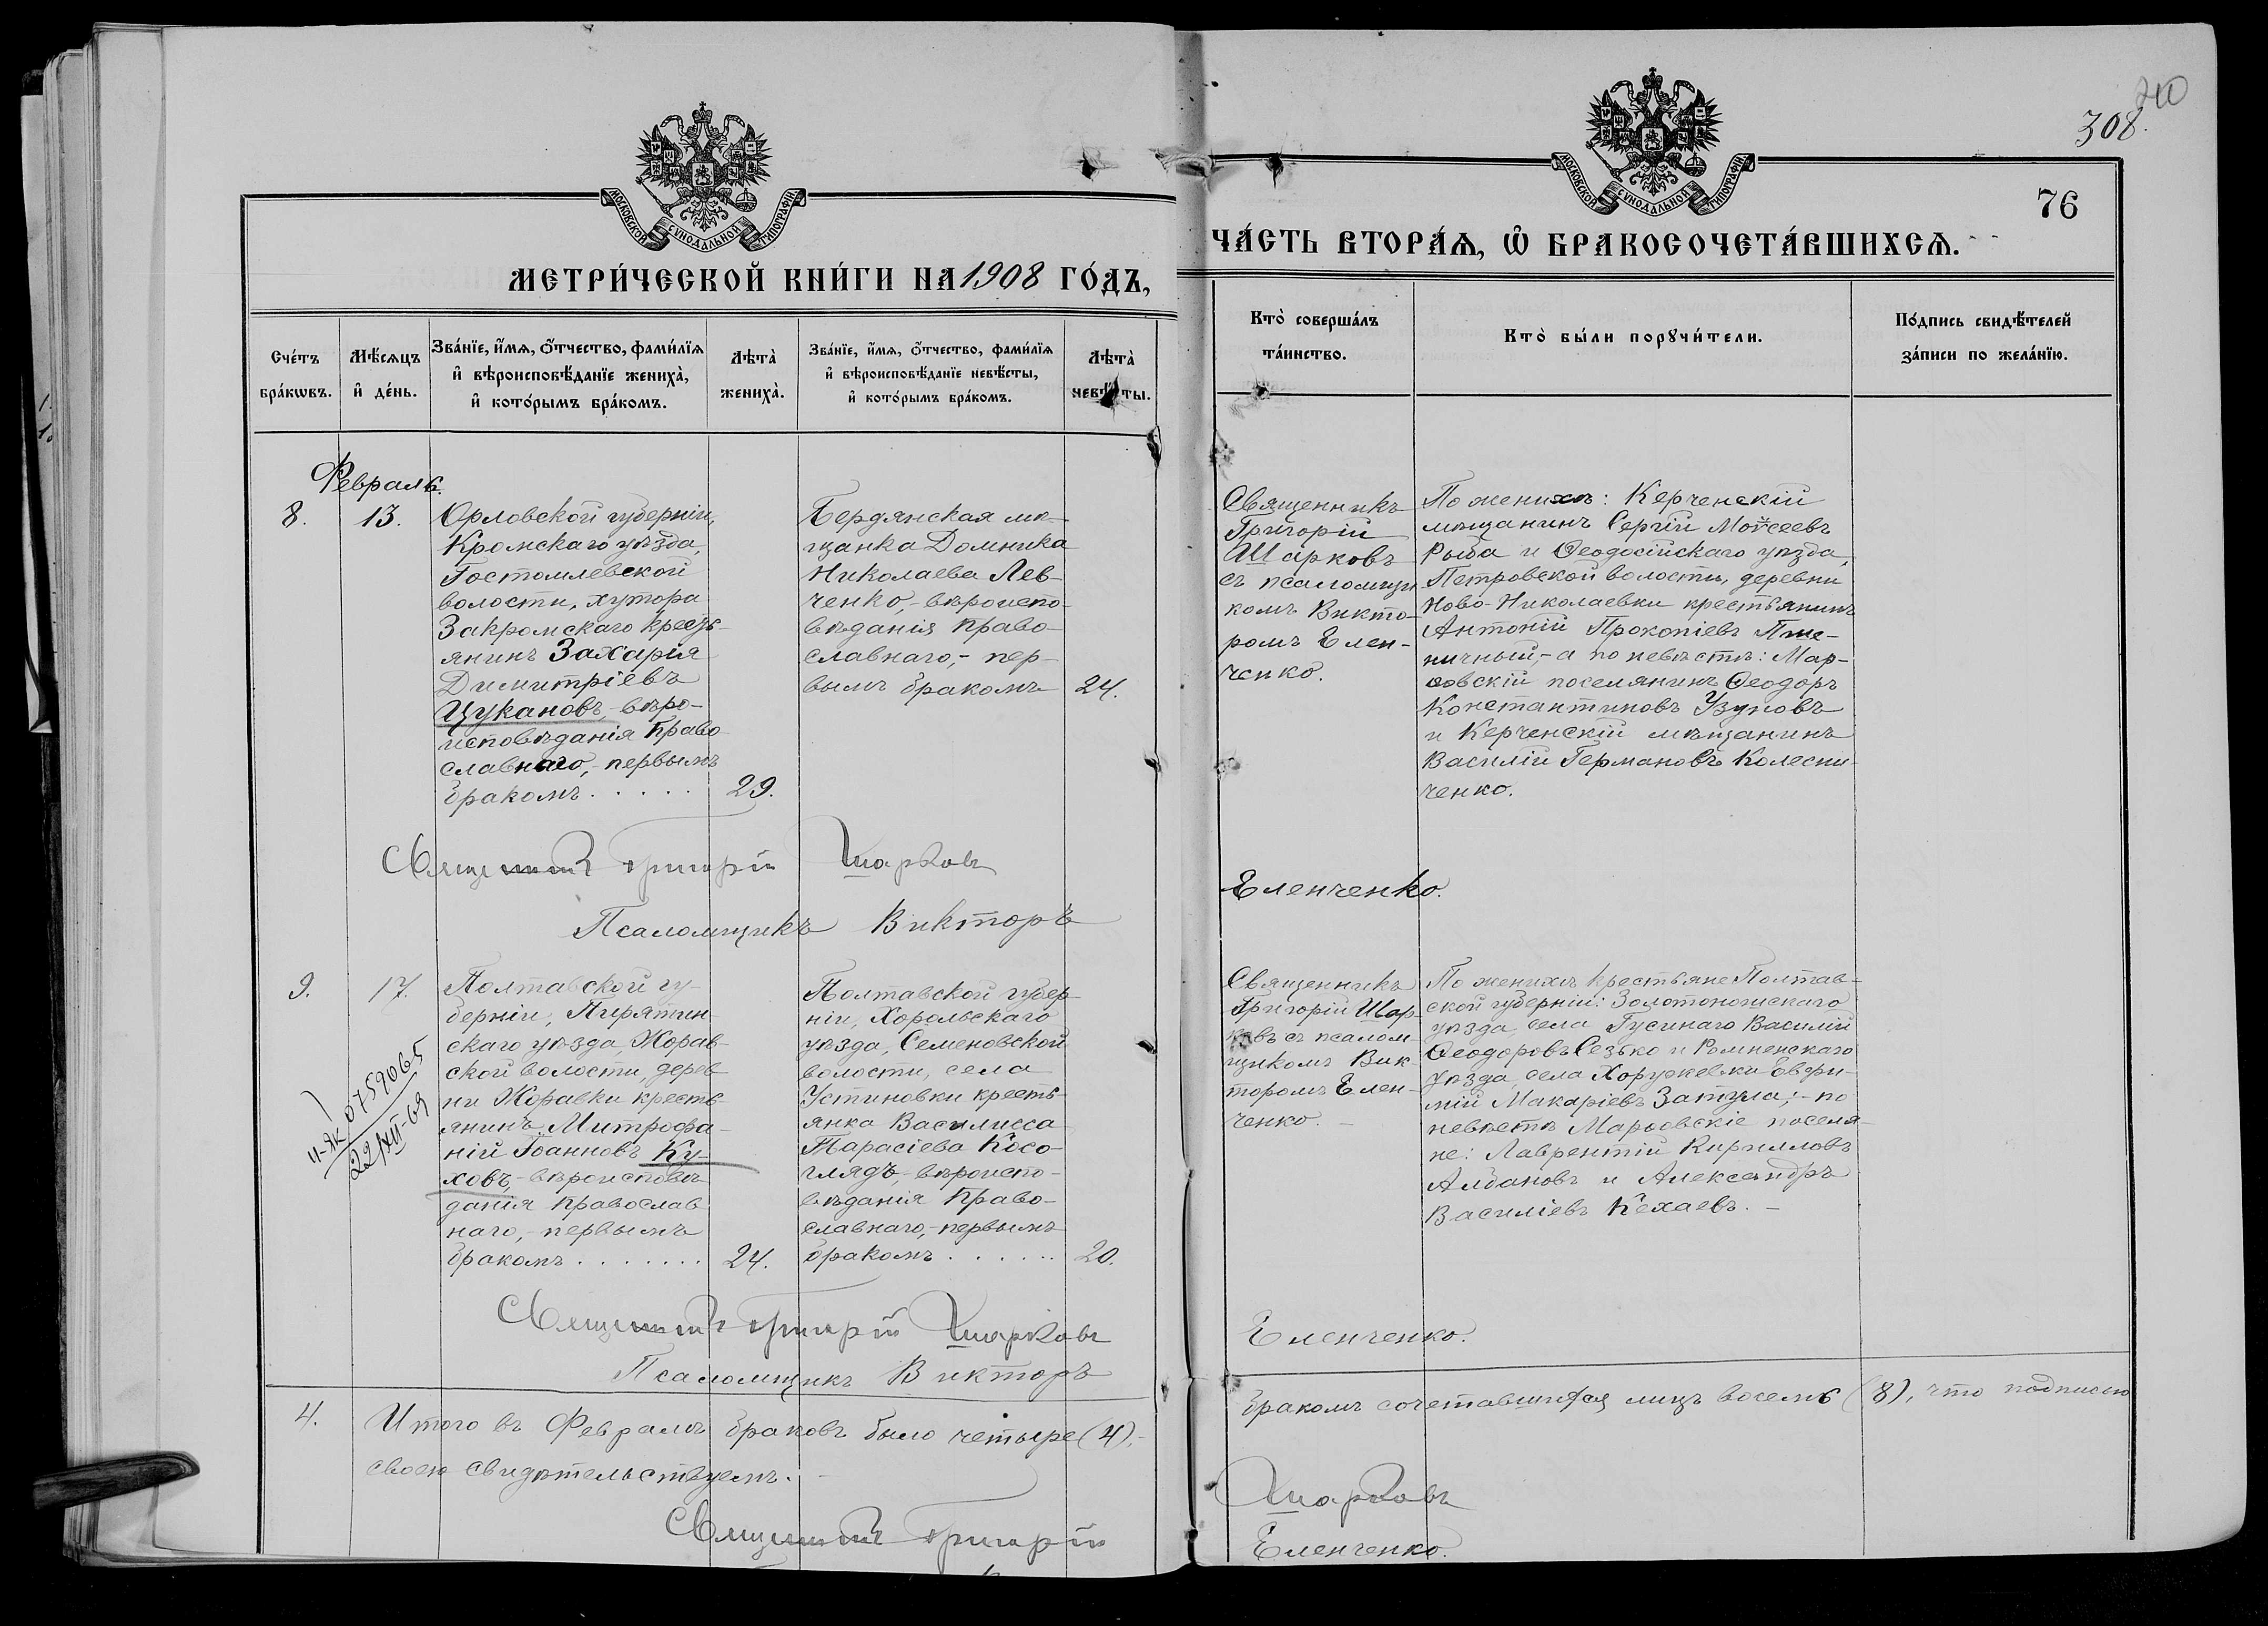 МОСКОВСКОЙ СѴНОДАЛЬНОЙ ТИПОГРАФІИ
МЕТРИ́ЧЕСКОЙ КНИ́ГИ НА 1908 ГО́ДЪ,
Сче́тъ бра́кѡвъ.
Мѣ́сяцъ и҆ де́нь.
Зва́нїе, и҆́мѧ, ѻ҆́тчество, фами́лїѧ и҆ вѣроисповѣ́данїе жениха̀, и҆ кото́рымъ бра́комъ.
Лѣта̀ жениха̀.
Зва́нїе, и҆́мѧ, ѻ҆́тчество, фами́лїѧ и҆ вѣроисповѣ́данїе невѣ́сты, и҆ кото́рымъ бра́комъ.
Лѣта̀ невѣ́сты.
Февраль.
8.
13.
Орловской губерніи,
Кромскаго уѣзда,
Гостомлевской
волости, хутора
Закромскаго кресть-
янинъ Захарія
Димитріевъ
Цукановъ,- вѣро-
исповѣданія Право
славнаго,- первымъ
бракомъ . . . . .
29.
Бердянская мѣ-
щанка Домника
Николаева Лев-
ченко,- вѣроиспо-
вѣданія Право-
славнаго,- пер-
вымъ бракомъ
24.
Священникъ Григорій Шарковъ
Псаломщикъ Викторъ
9.
17.
Полтавской гу-
берніи, Пирятин-
скаго уѣзда, Жорав-
ской волости, дерев
ни Жоравки кресть-
янинъ Митрофа-
ній Іоанновъ Ку-
ховъ,- вѣроисповѣ
данія Православ
наго,- первымъ
бракомъ . . . . . . .
24.
Полтавской губер-
ніи, Хорольскаго
уѣзда, Семеновской
волости, села
Устиновки кресть-
янка Василисса
Тарасіева Косо-
глядъ,- вѣроиспо-
вѣданія Право-
славнаго,- первымъ
бракомъ . . . . . .
20.
II-ЯК 0759065
22/XII-69
Священникъ Григорій Шарковъ
Псаломщикъ Викторъ
4.
Итого въ Февралѣ браковъ было четыре (4),-
своею свидѣтельствуемъ.
Священникъ Григорій
210
308.
МОСКОВСКОЙ СѴНОДАЛЬНОЙ ТИПОГРАФІИ
76
ЧА́СТЬ ВТОРА́Ѧ, Ѡ҆ БРАКОСОЧЕТА́ВШИХСѦ.
Кто̀ соверша́лъ та́инство.
Кто̀ бы́ли порꙋчи́тели.
По́дпись свидѣ́телей за́писи по жела́нїю.
Священникъ
Григорій
Шарковъ
съ псаломщи
комъ Викто-
ромъ Елен-
ченко.
По женихѣ: Керченскій
мѣщанинъ Сергій Моѵсеевъ
Рыба и Ѳеодосійскаго уѣзда,
Петровской волости, деревни
Ново-Николаевки крестьянинъ
Антоній Прокопіевъ Пше-
ничный,- а по невѣстѣ: Мар-
ѳовскій поселянинъ Ѳеодоръ
Константиновъ Узуновъ
и Керченскій мѣщанинъ
Василій Германовъ Колесни-
ченко.
Еленченко.
Священникъ
Григорій Шар-
ковъ съ псалом
щикомъ Вик-
торомъ Елен-
ченко. -
По женихѣ крестьяне Полтав-
ской губерніи: Золотоношскаго
уѣзда, села Гусинаго Василій
Ѳеодоровъ Сезько и Роменскаго
уѣзда, села Хоружевки Евѳи-
мій Макаріевъ Затула;- по
невѣстѣ Марѳовскіе поселя-
не: Лаврентій Кирилловъ
Албановъ и Александръ
Василіевъ Кехаевъ. -
Еленченко.
бракомъ сочетавшихся лицъ восемь (8), что подписью
Шарковъ
Еленченко.